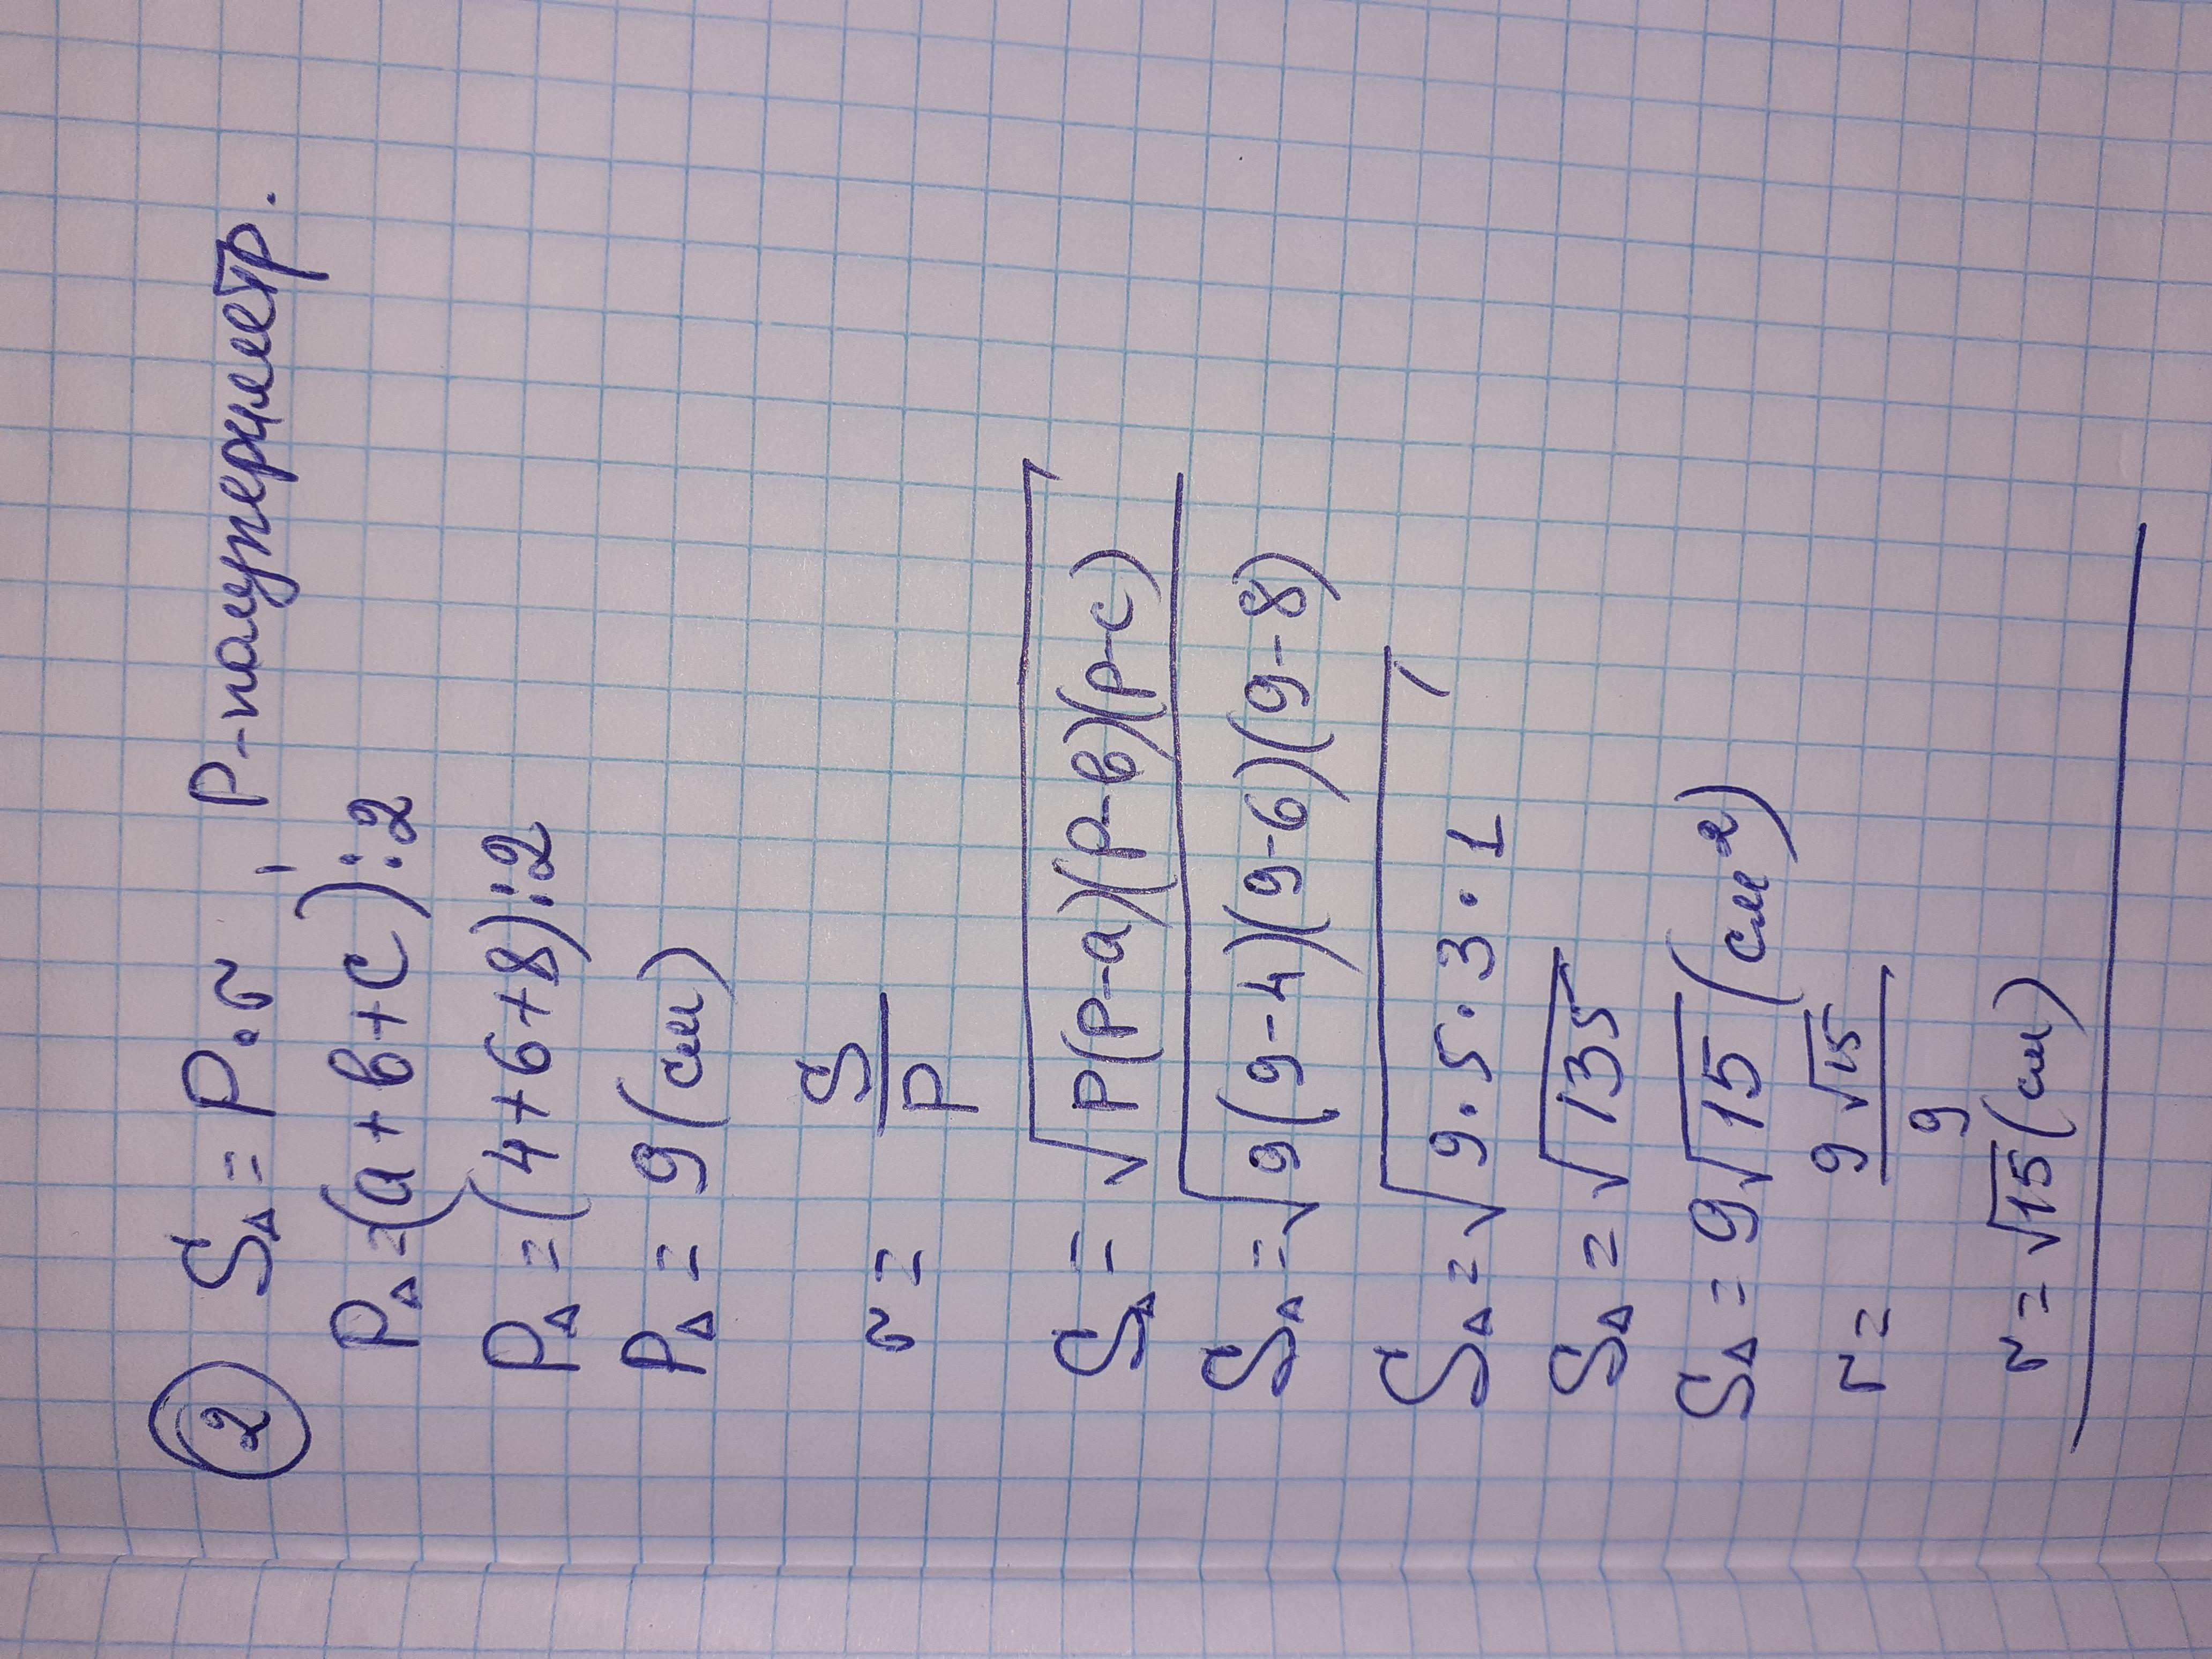 ② S△ = P·r, P-полупериметр.
P△ = (a+b+c):2
P△ = (4+6+8):2
P△ = 9 (см)
r = S/P
S△ = √P(P-a)(P-b)(P-c)
S△ = √9(9-4)(9-6)(9-8)
S△ = √9·5·3·1
S△ = √135
S△ = 9√15 (см²)
r = 9√15/9
r = √15 (см)